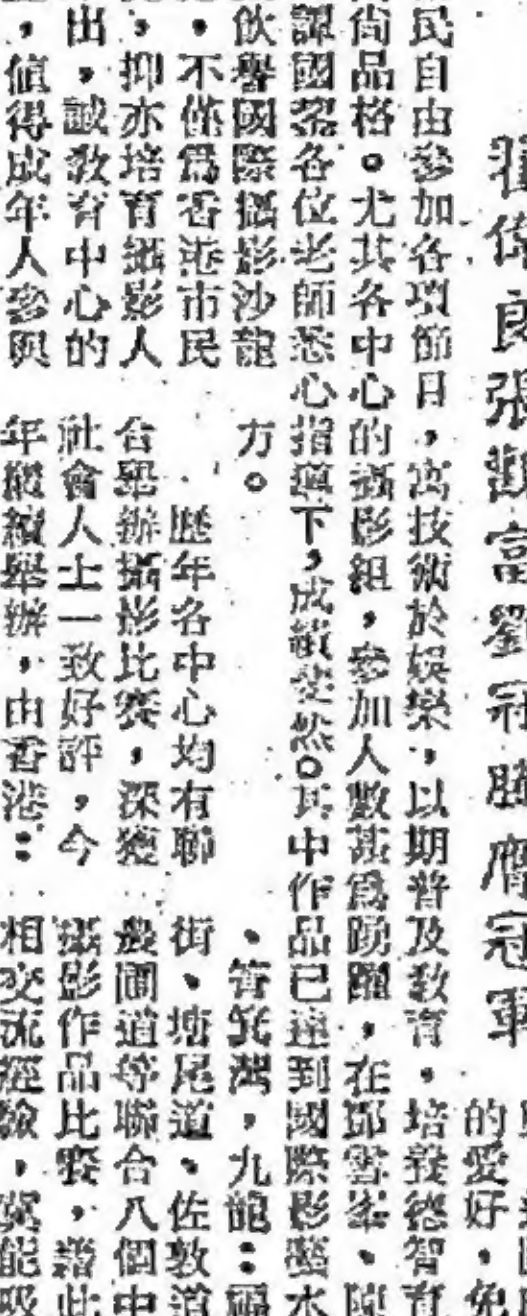 翟偉良張觀富劉冠騰膺冠軍
的愛好,免
民自由參加各項節目,寓技術於娛樂,以期普及敎育,培養德智育
尙品格。尤其各中心的攝影組,參加人數甚爲踴躍,在鄧雪峯、陳
譚國各位老師悉心指導下,成績斐然。其中作品已達到國際影藝水
飲譽國際攝影沙龍
,不僅爲香港市民
,抑亦培育攝影人
出,誠敎育中心的
,値得成年人參與
方。
歷年各中心均有聯
合舉辦攝影比賽,深獲
社會人士一致好評,今
年繼續舉辦,由香港:
、筲箕灣,九龍:福
街、塘尾道、佐敦道
農圃道等聯合八個中
攝影作品比賽,藉此
相交流經驗,冀能吸